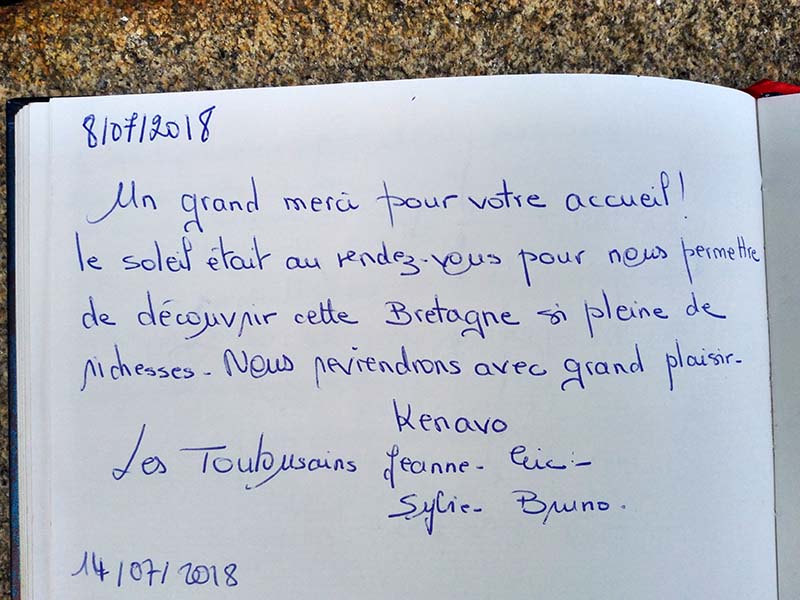 8/07/2018
Un grand merci pour votre accueil !
le soleil était au rendez-vous pour nous permettre
de découvrir cette Bretagne si pleine de
richesses - Nous reviendrons avec grand plaisir -
Kenavo
Les Toulousains Jeanne - Eric -
Sylvie - Bruno .
14/07/2018